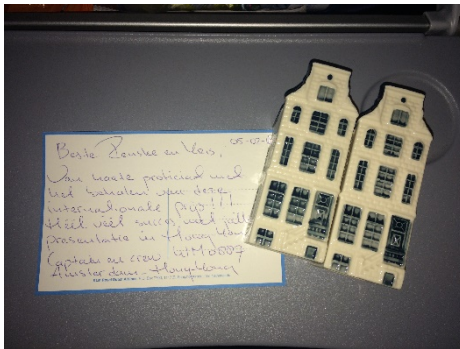 05-02-1
Beste Renske en Kees,
Van harte proficiat met
het behalen van deze
internationale prijs!!!
Heel véél succes met jullie
presentatie in Hong Kong
Captain en crew KLM0887
Amsterdam - Hong Kong